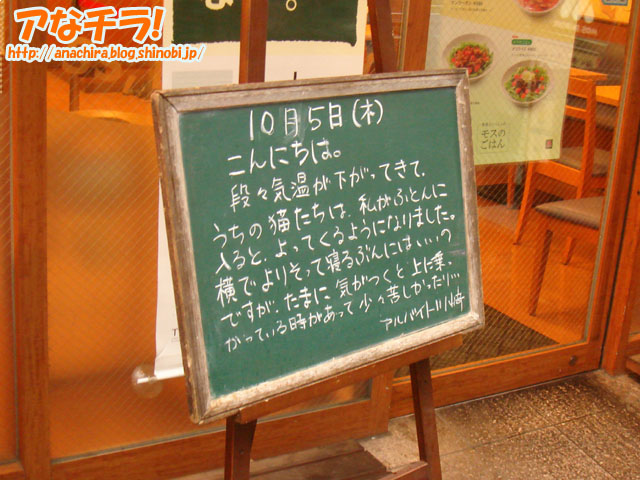 アなチラ!
http://anachira.blog.shinobi.jp/
10月5日(木)
こんにちは。
段々気温が下がってきて、
うちの猫たちは、私がふとんに
入ると、よってくるようになりました。
横でよりそって寝るぶんにはいいの
ですが、たまに気がつくと上に乗っ
かっている時があって少々苦しかったり…
アルバイト 川崎
モスの
ごはん